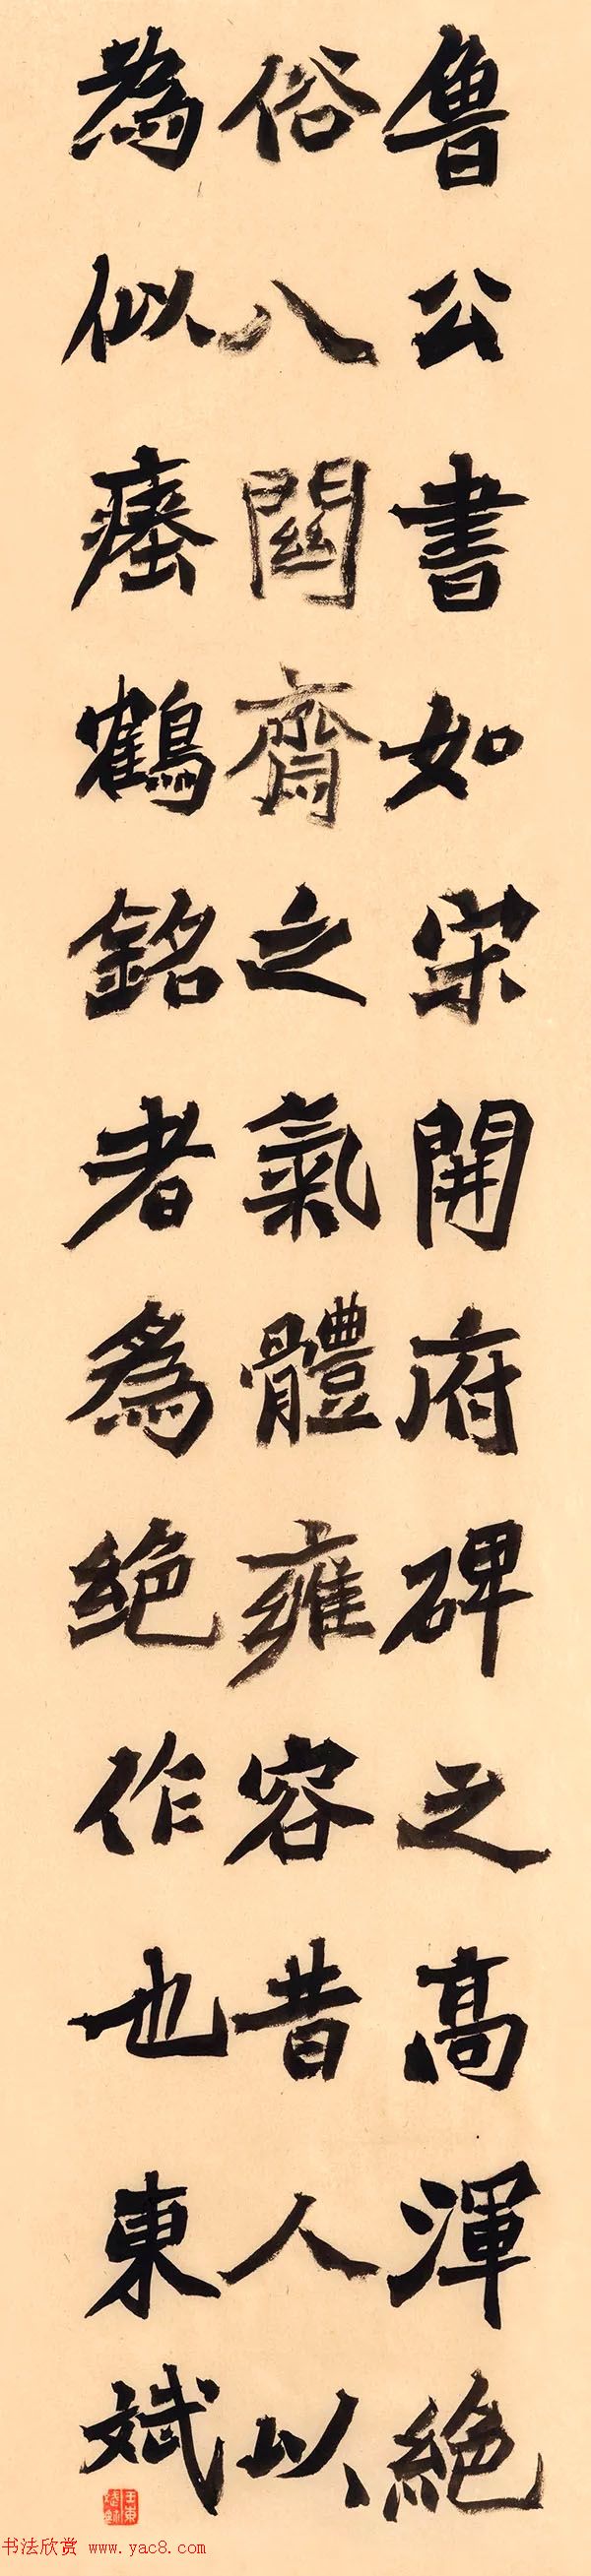 魯公書如宋開府碑之高渾絕
俗八關齋之氣體雍容昔人以
為似瘞鶴銘者為絕作也東斌
书法欣赏 www.yac8.com